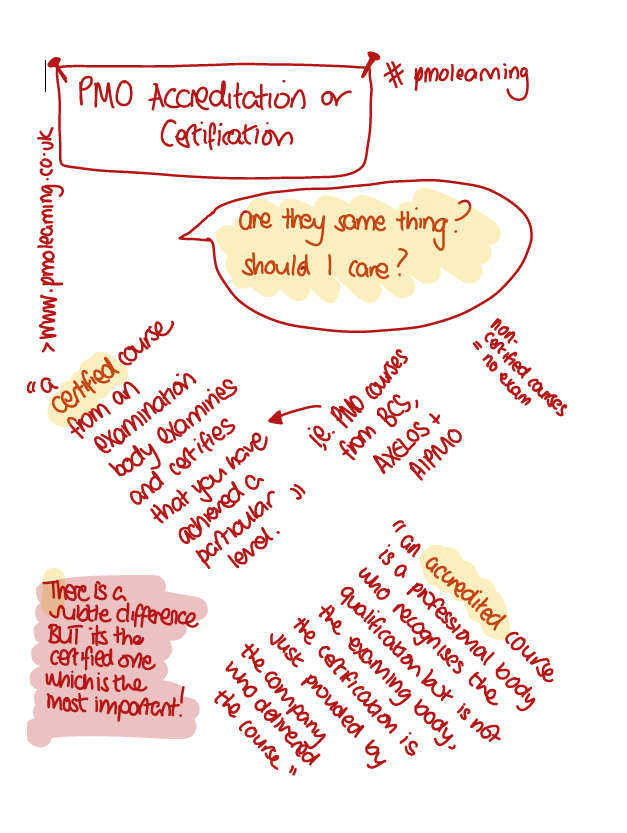 PMO Accreditation or
Certification
# pmolearning
> www.pmolearning.co.uk
are they same thing?
should I care?
"a
certified course
from an
examination
body examines
and certifies
that you have
achieved a
particular
level. "
i.e. PMO courses
from BCS,
AXELOS +
AIPMO
non-
certified courses
= no exam
"an accredited course
is a professional body
who recognises the
qualification but is not
the examing body,
the certification is
just provided by
the company
who delivered
the course "
There is a
subtle difference
BUT its the
certified one
which is the
most important!